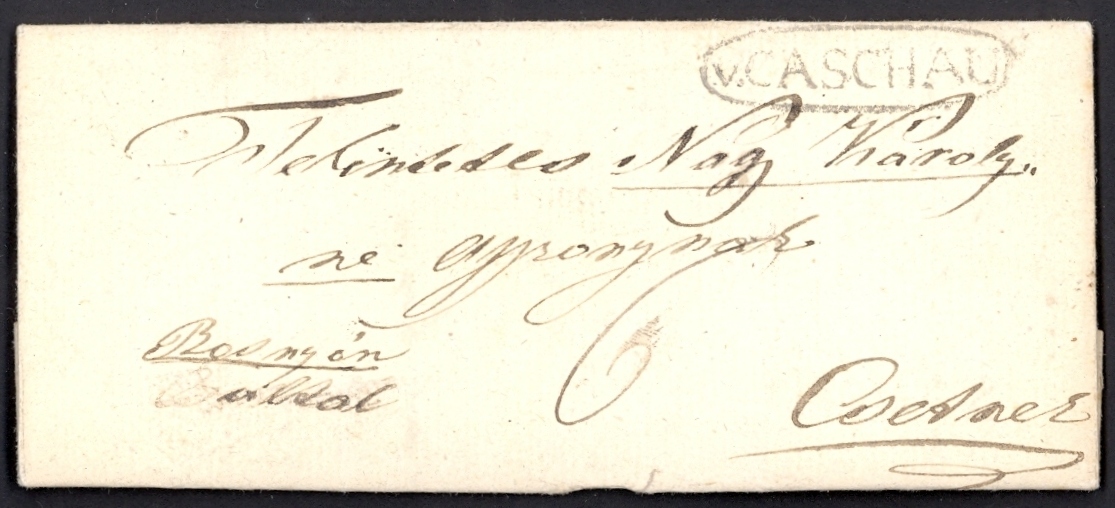 v.CASCHAU
Tekintetes Nagy Károly
né aszonynak
Rosnyón
által
6
Csetnek